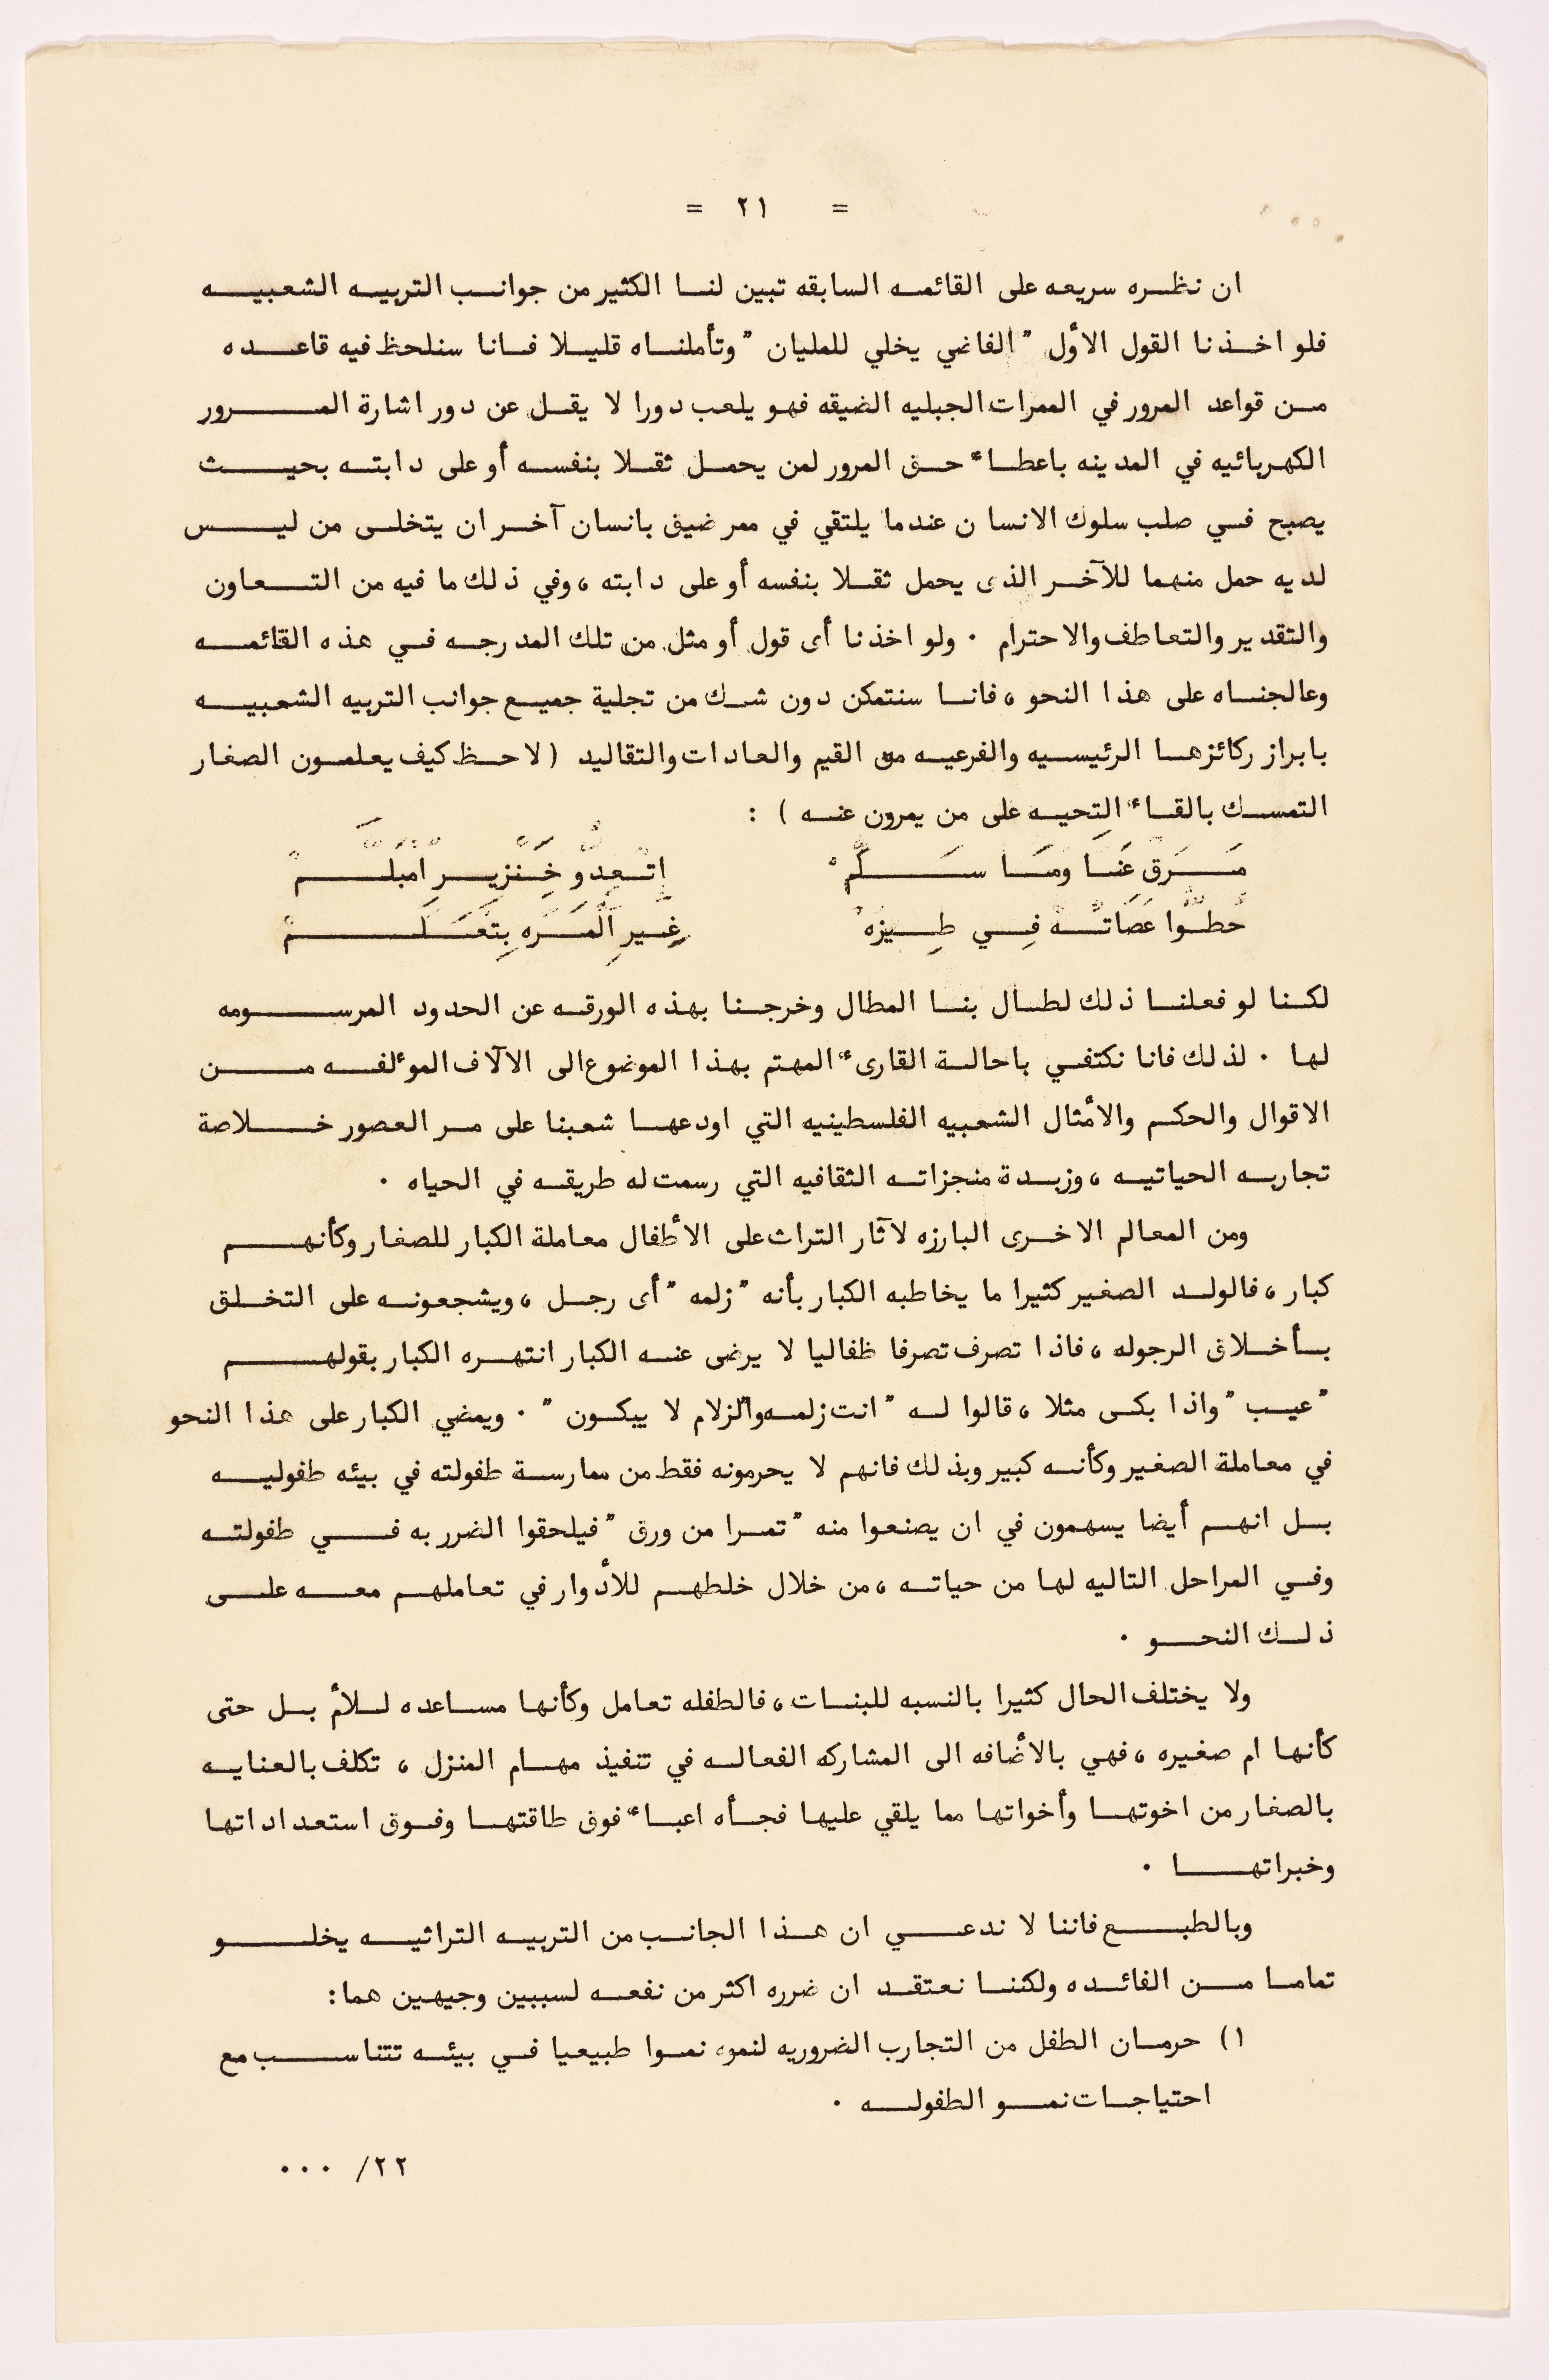 = ٢١ =
ان نظره سريعه على القائمه السابقه تبين لنا الكثير من جوانب التربيه الشعبيه
فلو اخذنا القول الأول "الفاضي يخلي للمليان" وتأملناه قليلا فانا سنلحظ فيه قاعده
من قواعد المرور في الممرات الجبليه الضيقه فهو يلعب دورا لا يقل عن دور اشارة المرور
الكهربائيه في المدينه باعطاء حق المرور لمن يحمل ثقلا بنفسه أو على دابته بحيث
يصبح في صلب سلوك الانسان عندما يلتقي في ممر ضيق بانسان آخر ان يتخلى من ليس
لديه حمل منهما للآخر الذى يحمل ثقلا بنفسه أو على دابته ، وفي ذلك ما فيه من التعاون
والتقدير والتعاطف والاحترام . ولو اخذنا أى قول أو مثل من تلك المدرجه في هذه القائمه
وعالجناه على هذا النحو ، فانا سنتمكن دون شك من تجلية جميع جوانب التربيه الشعبيه
بابراز ركائزها الرئيسيه والفرعيه من القيم والعادات والتقاليد ( لاحظ كيف يعلمون الصغار
التمسك بالقاء التحيه على من يمرون عنه ) :
مَرَقْ عَنَا ومَا سَلَّمْ اتْعِدُّو خَنْزِيرِ امْبَلَّمْ
حُطُّوا عَصَاتُهْ فِي طِيزهْ غِيرِ الْمَرَّه بِتْعَلَّمْ
لكنا لو فعلنا ذلك لطال بنا المطال وخرجنا بهذه الورقه عن الحدود المرسومه
لها . لذلك فانا نكتفي باحالة القارىء المهتم بهذا الموضوع الى الآلاف المؤلفه من
الاقوال والحكم والأمثال الشعبيه الفلسطينيه التي اودعها شعبنا على مر العصور خلاصة
تجاربه الحياتيه ، وزبدة منجزاته الثقافيه التي رسمت له طريقه في الحياه .
ومن المعالم الاخرى البارزه لآثار التراث على الأطفال معاملة الكبار للصغار وكأنهم
كبار ، فالولد الصغير كثيرا ما يخاطبه الكبار بأنه "زلمه" أى رجل ، ويشجعونه على التخلق
بأخلاق الرجوله ، فاذا تصرف تصرفا ظفاليا لا يرضى عنه الكبار انتهره الكبار بقولهم
"عيب" واذا بكى مثلا ، قالوا له "انت زلمه والزلام لا يبكون" . ويمضي الكبار على هذا النحو
في معاملة الصغير وكأنه كبير وبذلك فانهم لا يحرمونه فقط من ممارسة طفولته في بيئه طفوليه
بل انهم أيضا يسهمون في ان يصنعوا منه "تمرا من ورق" فيلحقوا الضرر به في طفولته
وفي المراحل التاليه لها من حياته ، من خلال خلطهم للأدوار في تعاملهم معه على
ذلك النحو .
ولا يختلف الحال كثيرا بالنسبه للبنات ، فالطفله تعامل وكأنها مساعده للأم بل حتى
كأنها ام صغيره ، فهي بالأضافه الى المشاركه الفعاله في تنفيذ مهام المنزل ، تكلف بالعنايه
بالصغار من اخوتها وأخواتها مما يلقي عليها فجأه اعباء فوق طاقتها وفوق استعداداتها
وخبراتها .
وبالطبع فاننا لا ندعي ان هذا الجانب من التربيه التراثيه يخلو
تماما من الفائده ولكننا نعتقد ان ضرره اكثر من نفعه لسببين وجيهين هما :
١) حرمان الطفل من التجارب الضروريه لنموه نموا طبيعيا في بيئه تتناسب مع
احتياجات نمو الطفوله .
٢٢/ ...